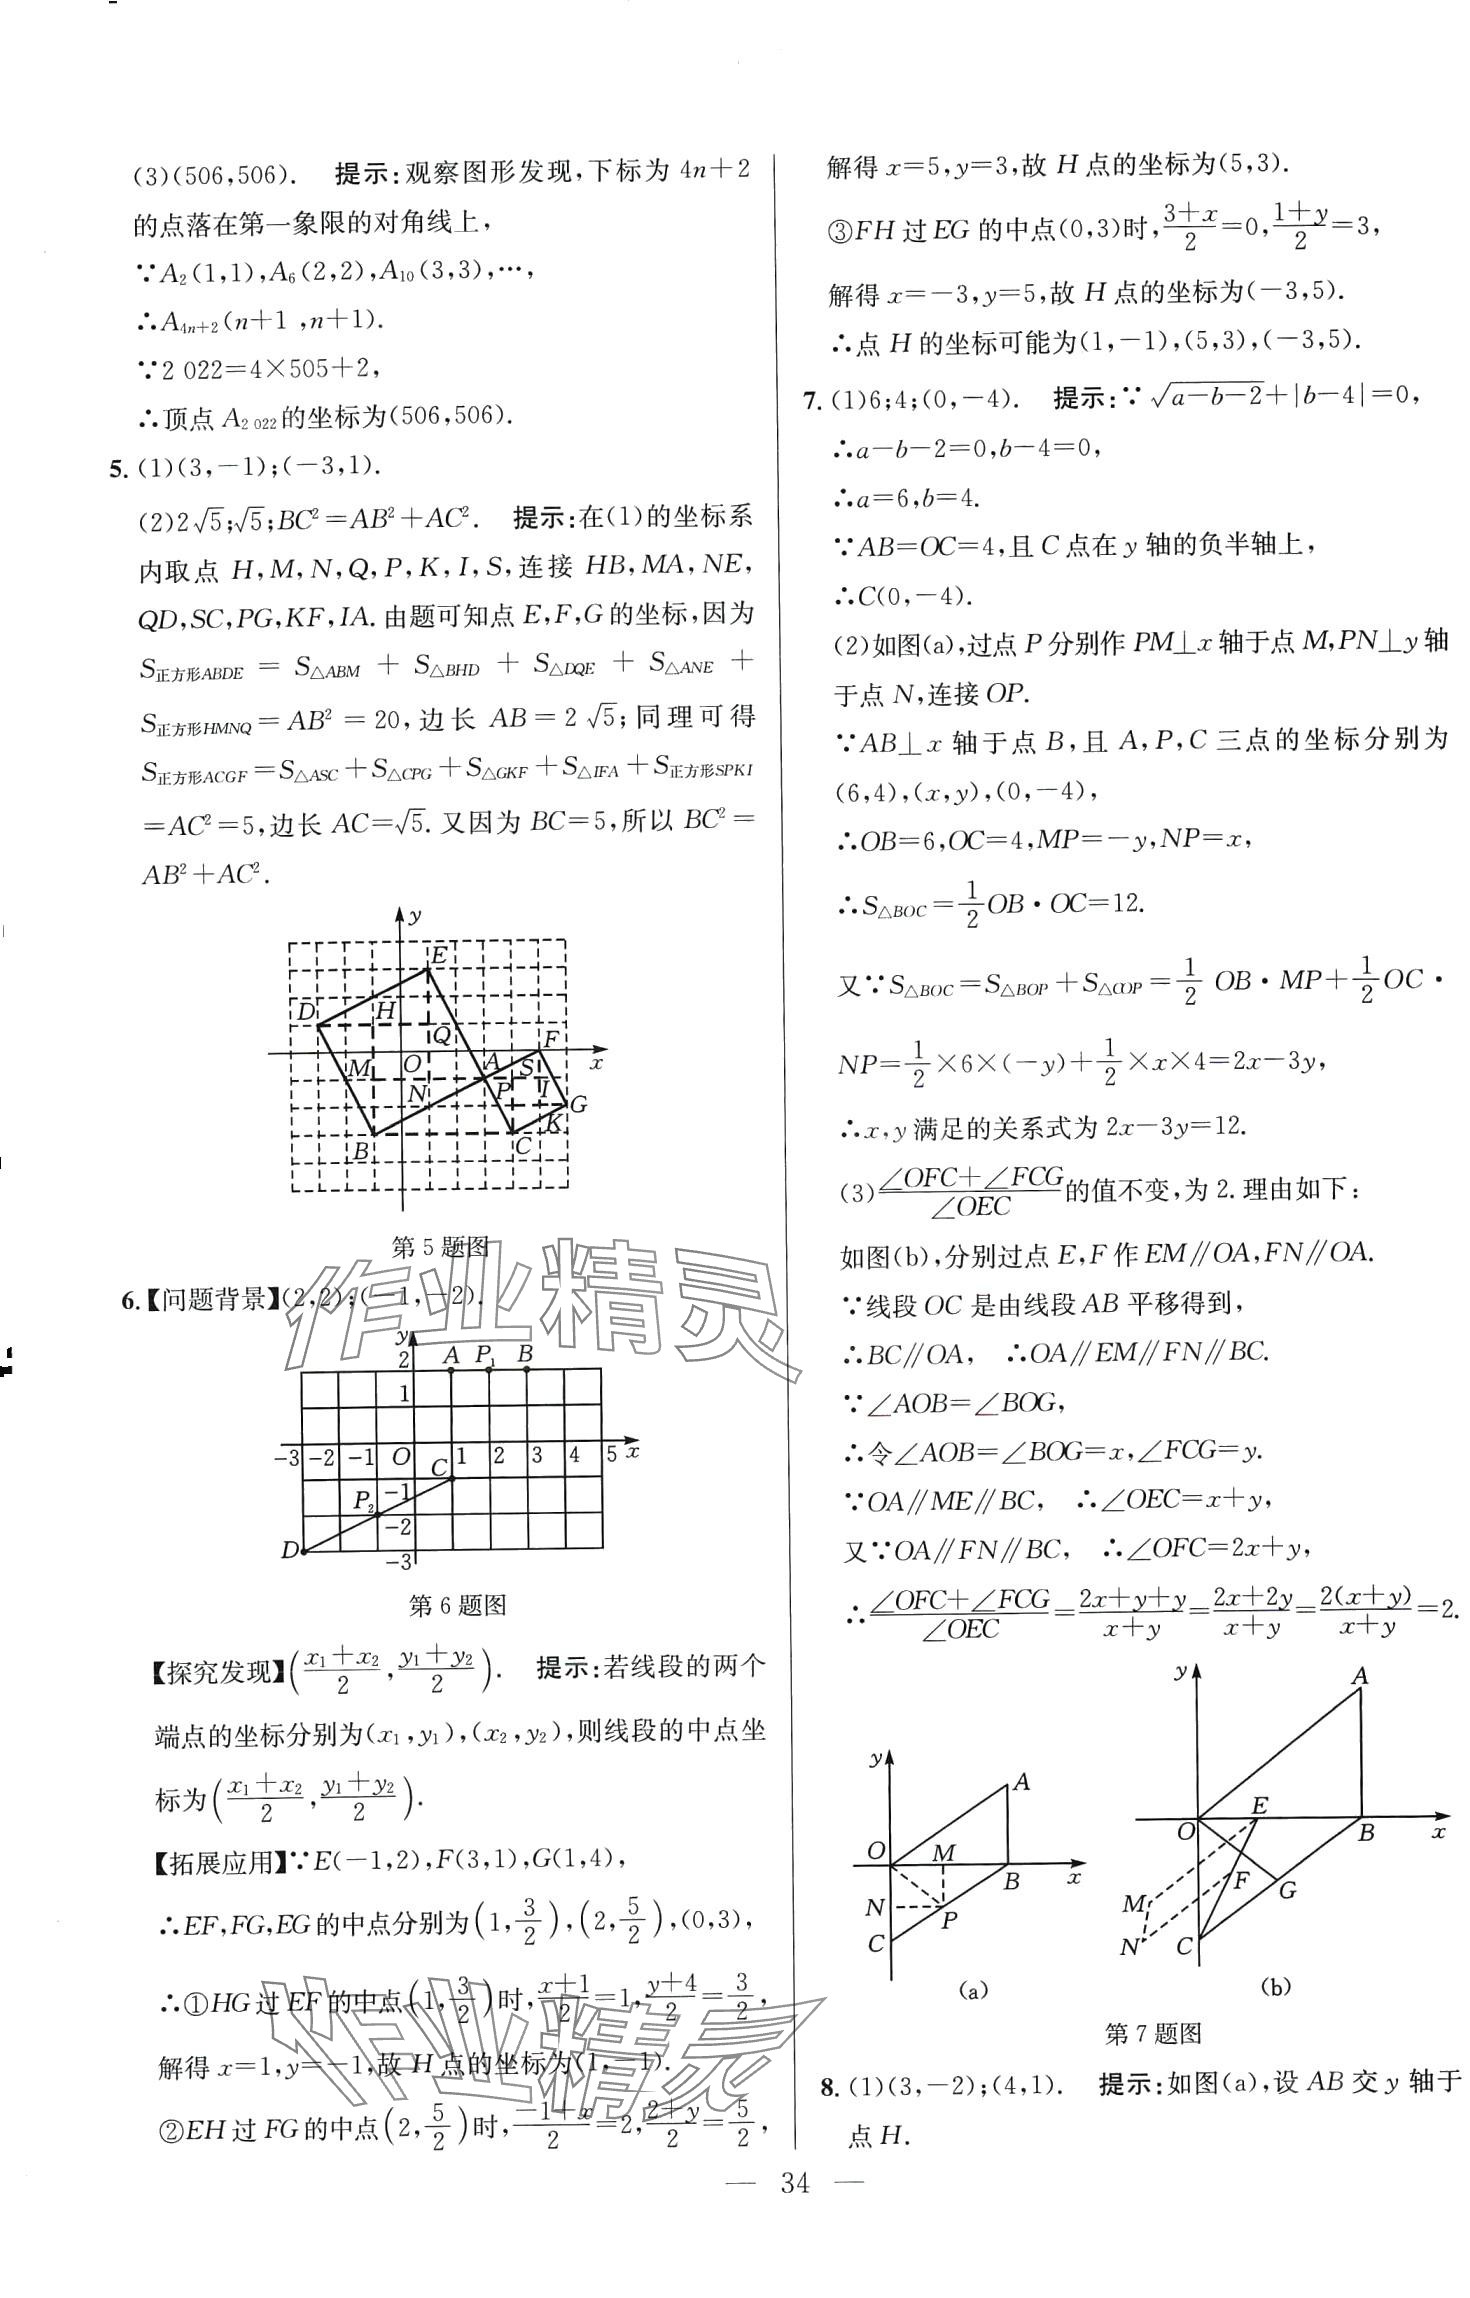 (3)(506,506). 提示:观察图形发现,下标为 4n+2
的点落在第一象限的对角线上,
∵A₂(1,1),A₆(2,2),A₁₀(3,3),…,
∴A₄ₙ₊₂(n+1 ,n+1).
∵2 022=4×505+2,
∴顶点 A₂ ₀₂₂的坐标为(506,506).
5. (1)(3,-1);(-3,1).
(2)2√5;√5;BC²=AB²+AC². 提示:在(1)的坐标系
内取点 H,M,N,Q,P,K,I,S,连接 HB,MA,NE,
QD,SC,PG,KF,IA.由题可知点 E,F,G的坐标,因为
S正方形ABDE = S△ABM + S△BHD + S△DQE + S△ANE +
S正方形HMNQ=AB²=20,边长 AB=2√5;同理可得
S正方形ACGF=S△ASC+S△CPG+S△GKF+S△IFA+S正方形SPKI
=AC²=5,边长 AC=√5.又因为 BC=5,所以 BC²=
AB²+AC².
y
E
D H
Q F
M O A S x
N P I G
K
B C
第 5 题图
6.【问题背景】(2,2);(-1,-2).
y
2 A P₁ B
1
-3 -2 -1 O 1 2 3 4 5 x
C
P₂ -1
-2
D -3
第 6 题图
【探究发现】((x₁+x₂)/2,(y₁+y₂)/2). 提示:若线段的两个
端点的坐标分别为(x₁,y₁),(x₂,y₂),则线段的中点坐
标为((x₁+x₂)/2,(y₁+y₂)/2).
【拓展应用】∵E(-1,2),F(3,1),G(1,4),
∴EF,FG,EG的中点分别为(1,3/2),(2,5/2),(0,3),
∴①HG过EF的中点(1,3/2)时,(x+1)/2=1,(y+4)/2=3/2,
解得 x=1,y=-1,故 H 点的坐标为(1,-1).
②EH过FG的中点(2,5/2)时,(-1+x)/2=2,(2+y)/2=5/2,
解得 x=5,y=3,故 H 点的坐标为(5,3).
③FH过EG的中点(0,3)时,(3+x)/2=0,(1+y)/2=3,
解得 x=-3,y=5,故 H 点的坐标为(-3,5).
∴点 H 的坐标可能为(1,-1),(5,3),(-3,5).
7. (1)6;4;(0,-4). 提示:∵√(a-b-2)+|b-4|=0,
∴a-b-2=0,b-4=0,
∴a=6,b=4.
∵AB=OC=4,且 C 点在 y 轴的负半轴上,
∴C(0,-4).
(2)如图(a),过点 P 分别作 PM⊥x 轴于点 M,PN⊥y 轴
于点 N,连接 OP.
∵AB⊥x 轴于点 B,且 A,P,C 三点的坐标分别为
(6,4),(x,y),(0,-4),
∴OB=6,OC=4,MP=-y,NP=x,
∴S△BOC=1/2OB·OC=12.
又∵S△BOC=S△BOP+S△COP=1/2 OB·MP+1/2OC·
NP=1/2×6×(-y)+1/2×x×4=2x-3y,
∴x,y 满足的关系式为 2x-3y=12.
(3)(∠OFC+∠FCG)/∠OEC的值不变,为 2.理由如下:
如图(b),分别过点 E,F 作 EM∥OA,FN∥OA.
∵线段 OC 是由线段 AB 平移得到,
∴BC∥OA, ∴OA∥EM∥FN∥BC.
∵∠AOB=∠BOG,
∴令∠AOB=∠BOG=x,∠FCG=y.
∵OA∥ME∥BC, ∴∠OEC=x+y,
又∵OA∥FN∥BC, ∴∠OFC=2x+y,
∴(∠OFC+∠FCG)/∠OEC=(2x+y+y)/(x+y)=(2x+2y)/(x+y)=2(x+y)/(x+y)=2.
y
A
O M
B x
N
P
C
(a)
y
A
E
O B x
M F
G
N C
(b)
第 7 题图
8. (1)(3,-2);(4,1). 提示:如图(a),设 AB 交 y 轴于
点 H.
— 34 —
作业精灵
作业精灵